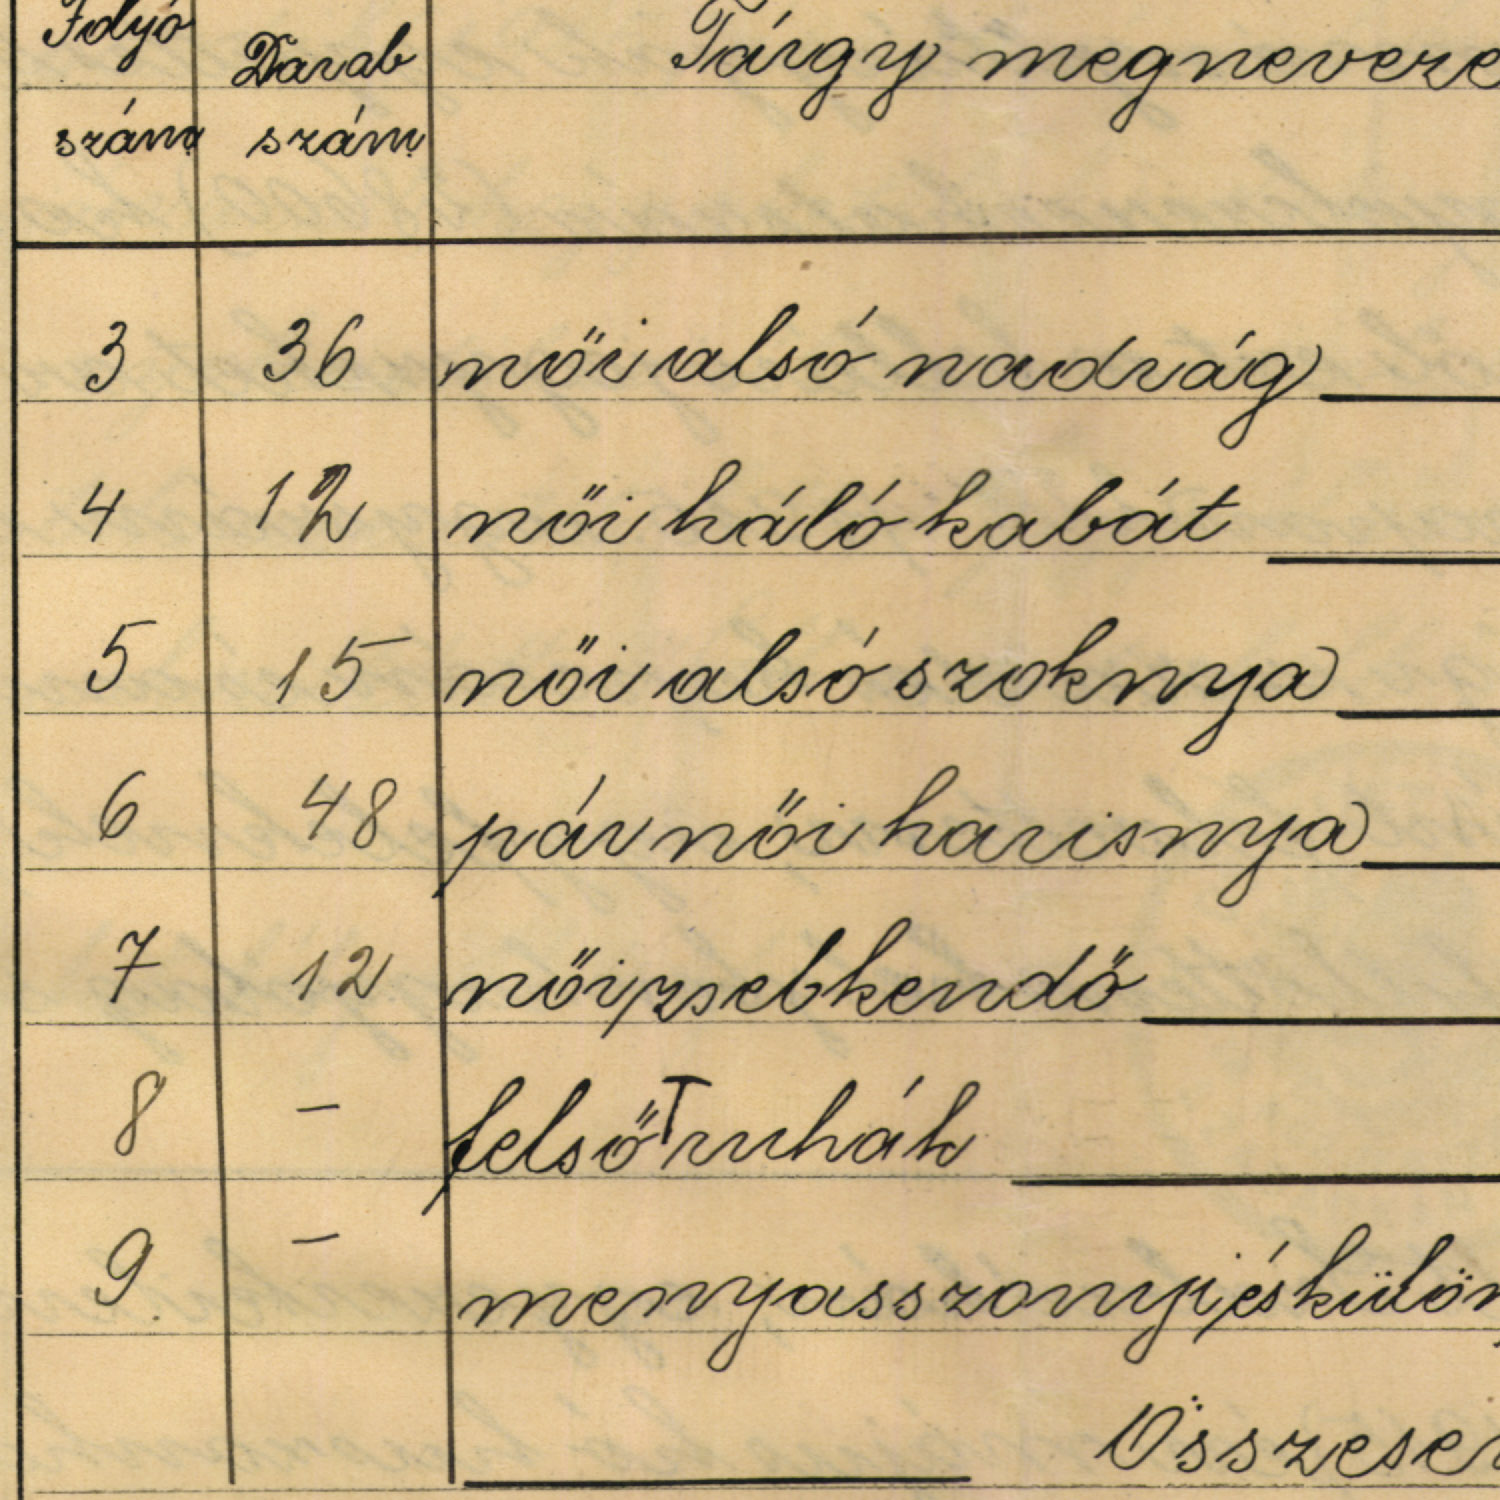 Folyó szám Darab szám Tárgy megneveze
3 36 női alsó nadrág
4 12 női háló kabát
5 15 női alsó szoknya
6 48 pár női harisnya
7 12 női zsebkendő
8 – felső ruhák
9. – menyasszonyi és külön
Összesen